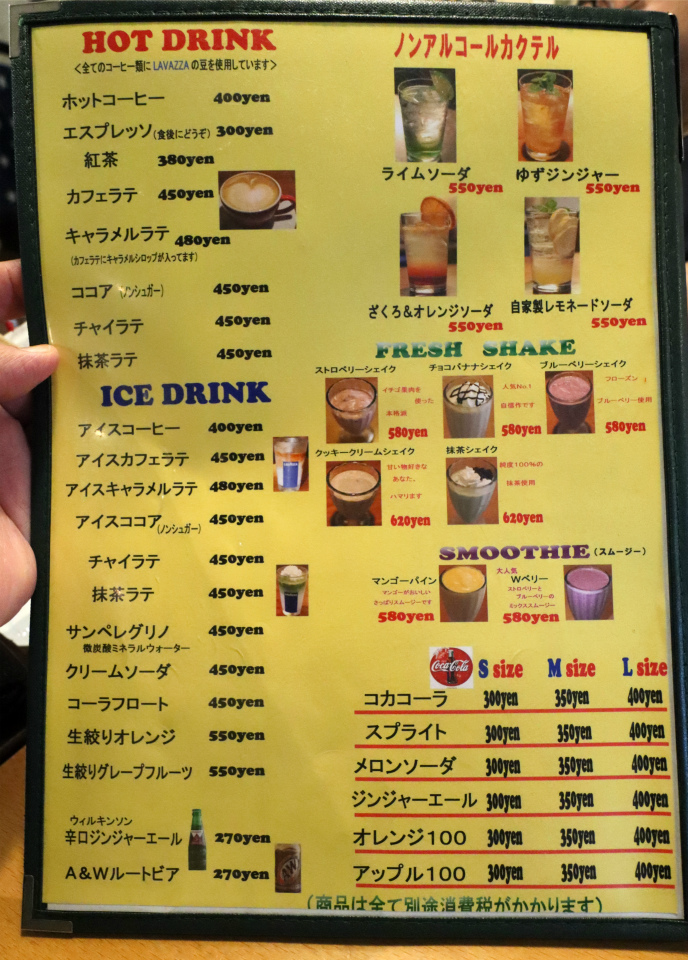 HOT DRINK
<全てのコーヒー類に LAVAZZA の豆を使用しています>
ホットコーヒー 400yen
エスプレッソ(食後にどうぞ) 300yen
紅茶 380yen
カフェラテ 450yen
キャラメルラテ 480yen
(カフェラテにキャラメルシロップが入ってます)
ココア (ノンシュガー) 450yen
チャイラテ 450yen
抹茶ラテ 450yen
ICE DRINK
アイスコーヒー 400yen
アイスカフェラテ 450yen
アイスキャラメルラテ 480yen
アイスココア(ノンシュガー) 450yen
チャイラテ 450yen
抹茶ラテ 450yen
サンペレグリノ 450yen
微炭酸ミネラルウォーター
クリームソーダ 450yen
コーラフロート 450yen
生絞りオレンジ 550yen
生絞りグレープフルーツ 550yen
ウィルキンソン
辛口ジンジャーエール 270yen
A&Wルートビア 270yen
ノンアルコールカクテル
ライムソーダ
550yen
ゆずジンジャー
550yen
ざくろ&オレンジソーダ
550yen
自家製レモネードソーダ
550yen
FRESH SHAKE
ストロベリーシェイク
イチゴ果肉を
使った
本格派
580yen
チョコバナナシェイク
人気No.1
自信作です
580yen
ブルーベリーシェイク
フローズン :)
ブルーベリー使用
580yen
クッキークリームシェイク
甘い物好きな
あなた、
ハマリます
620yen
抹茶シェイク
純度100%の
抹茶使用
620yen
SMOOTHIE (スムージー)
マンゴーパイン
マンゴーがおいしい
さっぱりスムージーです
580yen
大人気
Wベリー
ストロベリーと
ブルーベリーの
ミックススムージー
580yen
Coca-Cola S size M size L size
コカコーラ 300yen 350yen 400yen
スプライト 300yen 350yen 400yen
メロンソーダ 300yen 350yen 400yen
ジンジャーエール 300yen 350yen 400yen
オレンジ100 300yen 350yen 400yen
アップル100 300yen 350yen 400yen
(商品は全て別途消費税がかかります)